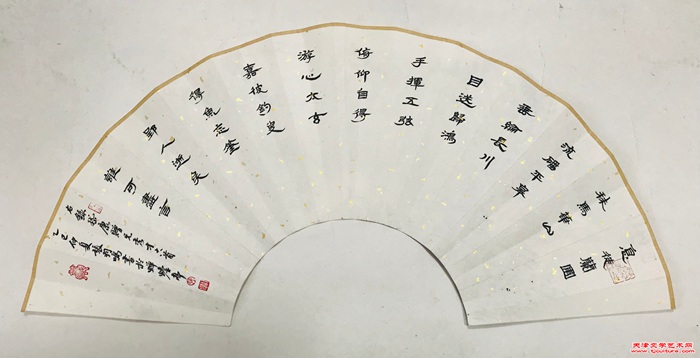 息徒蘭圃
秣馬華山
流磻平皋
垂綸長川
目送歸鴻
手揮五弦
俯仰自得
游心太玄
嘉彼釣叟
得魚忘筌
郢人逝矣
誰可盡言
嵇康贈
乙巳仲夏
天津文学艺术网
www.tjculture.com